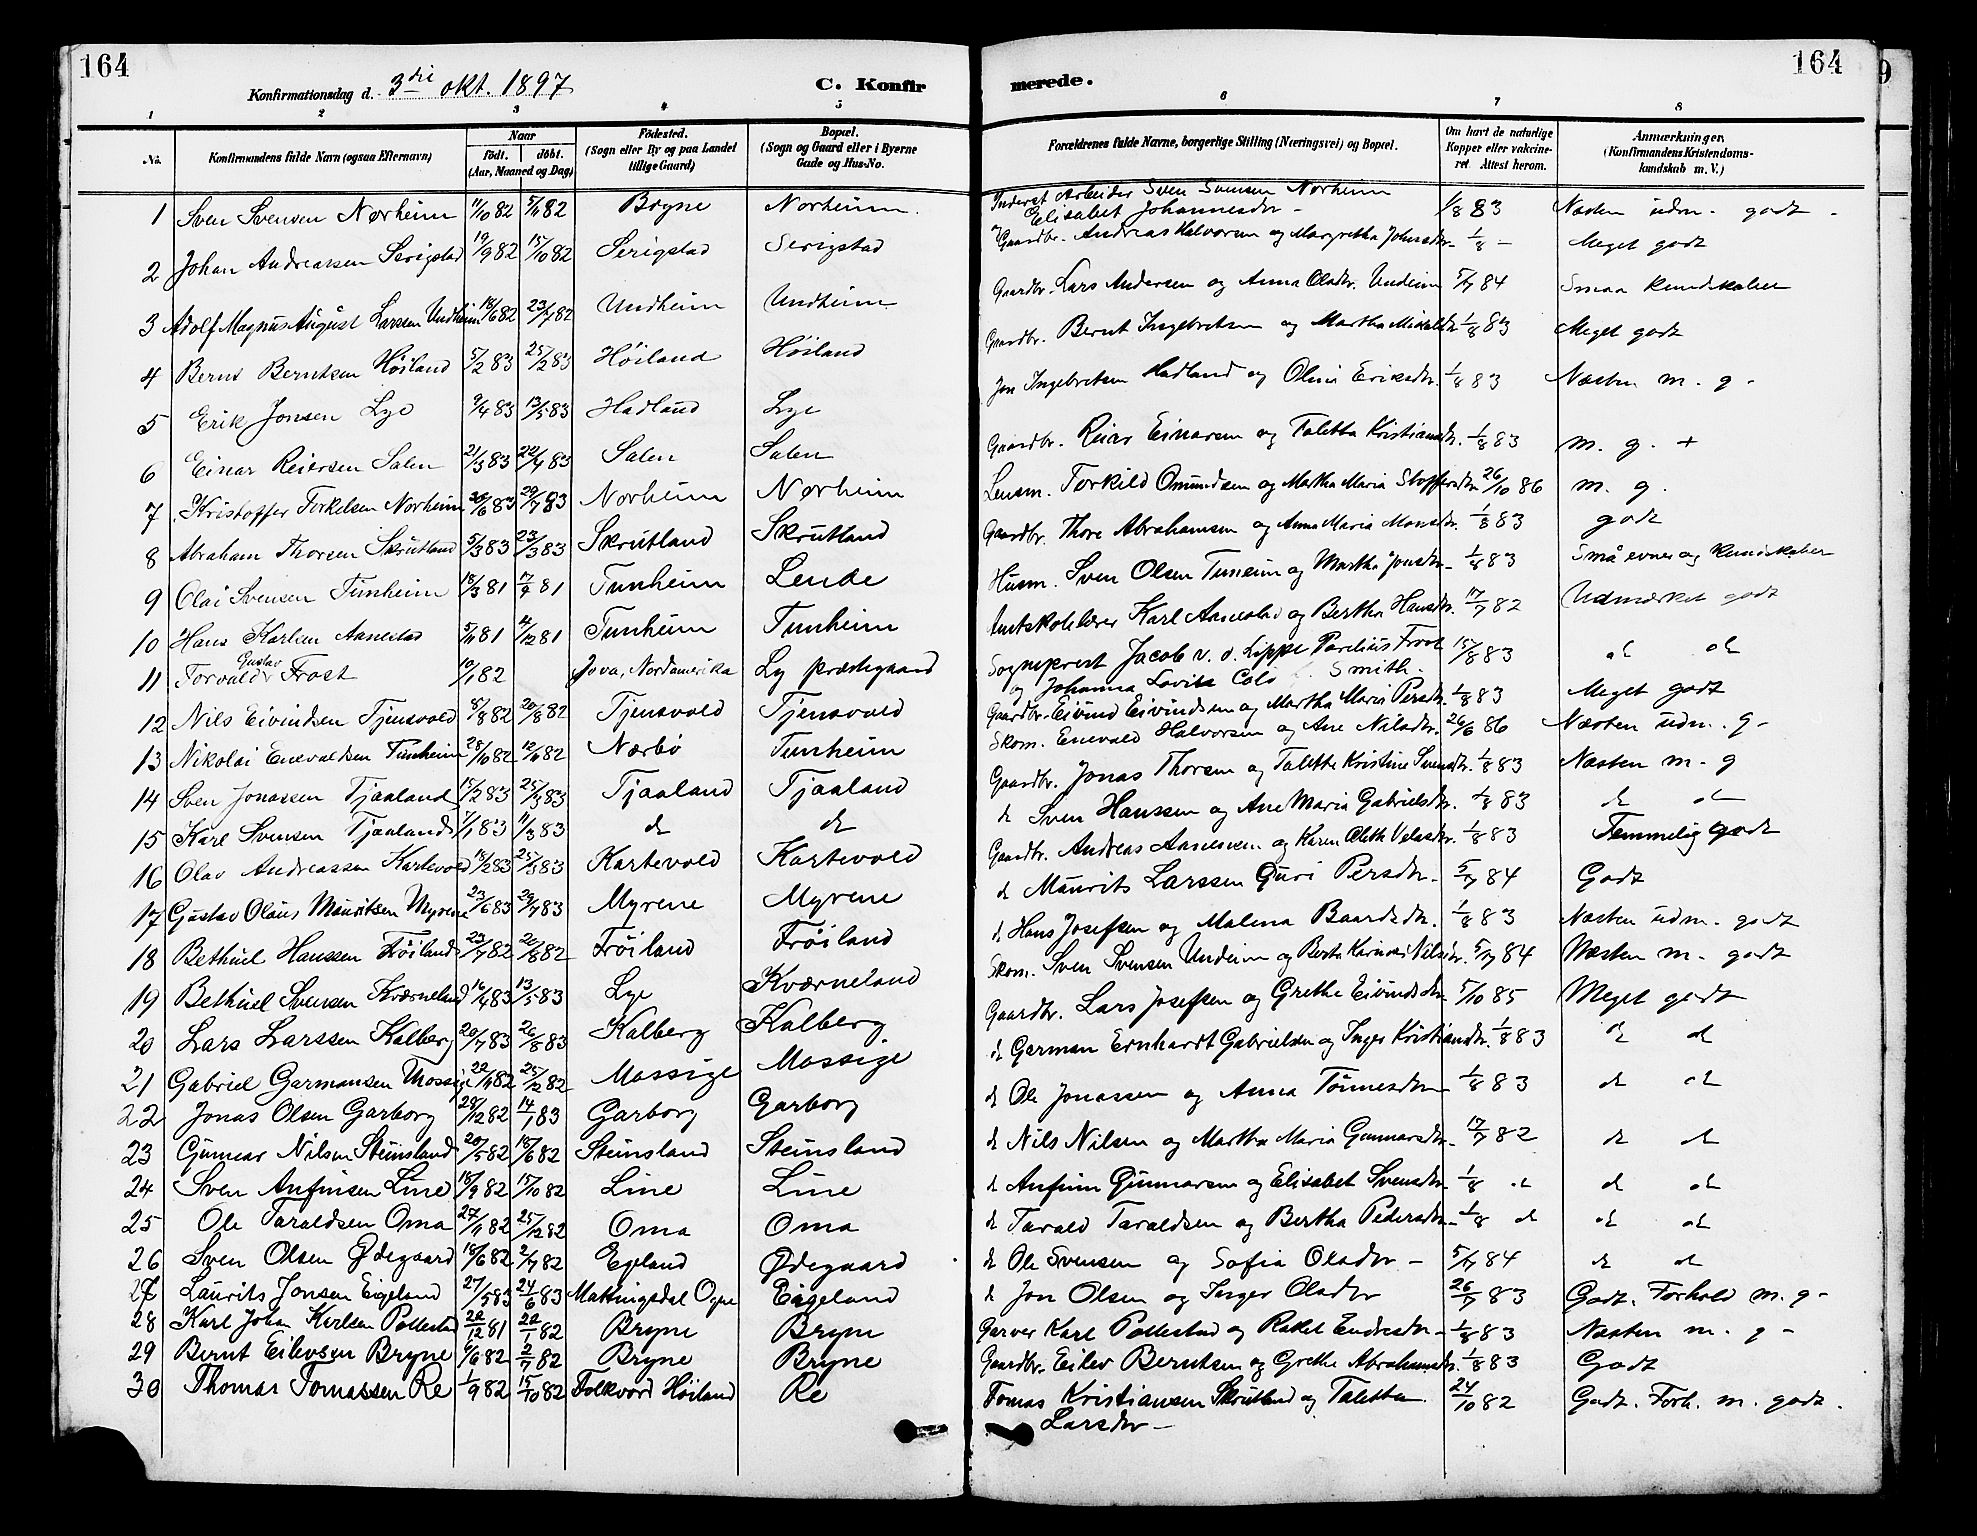 164
164
Konfirmationsdag d. 3dri okt. 1897
C. Konfirmerede.
1 2 3 4 5 6 7 8
No. Konfirmandens fulde Navn (ogsaa Efternavn) Naar födt. döbt. (Aar, Maaned og Dag) Födested. (Sogn eller By og paa Landet tillige Gaard) Bopæl. (Sogn og Gaard eller i Byerne Gade og Hus-No. Forældrenes fulde Navne, borgerlige Stilling (Næringsvei) og Bopæl. Om havt de naturlige Kopper eller vakcineret Attest herom. Anmærkninger. (Konfirmandens Kristendomskundskab m. V.)
1 Sven Svensen Norheim 11/10 82 5/11 82 Bryne Norheim. Inderst Arbeider Sven Svensen Norheim
Elisabet Johannesdtr - 1/8 83 Næsten udm. godt -
2 Johan Andreassen Serigstad 19/9 82 15/10 82 Serigstad Serigstad Gaardbr. Andreas Halvorsen og Margretha Johnsdtr. 1/8 - Meget godt
3 Adolf Magnus August Larssen Undheim 18/6 82 23/7 82 Undheim Undheim Gaardbr. Lars Andersen og Anna Olsdtr. Undeim 5/7 84 Smaa kundskaber
4 Bernt Berntsen Höiland 5/2 83 25/2 83 Höiland Höiland Gaardbr. Bernt Ingebretsen og Martha 1/8 83 Meget godt
5 Erik Jonsen Lye 9/4 83 13/5 83 Hadland Lye Jon Ingebretsen Hadland og Olene Eriksdtr. 1/8 83 Næsten m. g -
6 Einar Reiersen Salen 21/3 83 22/4 83 Salen Salen Gaardbr. Reier Einarsen og Taletta Kristiansdtr. 1/8 83 m. g. +
7 Kristoffer Torkelsen Norheim 26/6 83 29/7 83 Norheim Norheim Lensm. Torkild Omundsen og Martha Maria Stoffersdtr. 26/10 86 m. g.
8 Abraham Thorsen Skrutland 5/3 83 23/3 83 Skrutland Skrutland Gaardbr. Thore Abrahamsen og Anna Maria Monsdtr. 1/8 83 godt
9 Olai Svensen Tunheim 18/3 81 17/4 81 Tunheim Lende Husm. Sven Olsen Tuneim og Martha Jonsdtr. 1/8 83 Små evner og kundskaber
10 Hans Karlsen Aanestad 5/11 81 4/12 81 Tunheim Tunheim Amtskolelærer Karl Aanestad og Bertha Hansdtr. 17/7 82 Udmærket godt
11 Torvald Gustav Frost 19/1 82 Jova, Nordamerika Ly præstegaard Sogneprest Jacob v. d. Lippe Parelius Frost
og Johanna Lovisa Smith. 15/8 83 do do
12 Nils Eivindsen Tjensvold 8/8 82 20/8 82 Tjensvold Tjensvold Gaardbr. Eivind Eivindsen og Martha Maria Persdtr. 1/8 83 Meget godt
13 Nikolai Enevaldsen Tunheim 28/10 82 12/11 82 Nærbö Tunheim Skom. Enevald Halvorsen og Ane Nilsdtr. 26/6 86 Næsten udm. g -
14 Sven Jonassen Tjaaland 15/2 83 25/3 83 Tjaaland Tjaaland Gaardbr. Jonas Thorsen og Talette Kristine Svensdtr. 1/8 83 Næsten m. g
15 Karl Svensen Tjaaland 7/1 83 11/3 83 do do do Sven Hanssen og Ane Maria Gabrielsdtr. 1/8 83 do do
16 Olav Andreassen Kartevold 14/2 83 25/3 83 Kartevold Kartevold Gaardbr. Andreas Aanensen og Karen Oleth Velasdtr. 1/8 83 Temmelig godt
17 Gustav Olaus Mauritsen Myrene 23/6 83 29/7 83 Myrene Myrene do Maurits Larssen Guri Persdtr. 5/7 84 Godt
18 Bethuel Hanssen Fröiland 23/7 82 20/8 82 Fröiland Fröiland do Hans Josefsen og Malena Baardsdtr. 1/8 83 Næsten udm. godt
19 Bethuel Svensen Kværneland 16/4 83 13/5 83 Lye Kværneland Skom. Sven Svensen Undeim og Berta Nilsdtr. 5/7 84 Næsten m. godt
20 Lars Larssen Kalberg 20/7 83 26/8 83 Kalberg Kalberg Gaardbr. Lars Josefsen og Grethe Eivindsdtr 5/10 85 Meget godt
21 Gabriel Germansen Mossige 22/11 82 25/12 82 Mossige Mossige do German Ernhardt Gabrielsen og Inger Kristiansdtr. 1/8 83 do do
22 Jonas Olsen Garborg 28/12 82 14/1 83 Garborg Garborg do Ole Jonassen og Anna Tönnesdtr 1/8 83 do do
23 Gunnar Nilsen Steinsland 20/5 82 18/6 82 Steinsland Steinsland do Nils Nilsen og Martha Maria Gunnarsdtr. 17/7 82 do do
24 Sven Anfinsen Line 18/9 82 15/10 82 Line Line do Anfinn Gunnarsen og Elisabet Svensdtr 1/8 do do do
25 Ole Taraldsen Oma 27/11 82 25/12 82 Oma Oma do Tarald Taraldsen og Bertha Pedersdtr. 1/8 do do do
26 Sven Olsen Ødegaard 18/6 82 2/7 82 Egeland Ødegaard do Ole Svensen og Sofia Olsdtr - 5/7 84 do do
27 Laurits Jonsen Eigeland 27/5 83 24/6 83 Mattingsdal Ogne Eigeland do Jon Olsen og Inger Olsdtr 26/7 83 Godt. Forhold m. g -
28 Karl Johan Karlsen Pollestad 22/12 81 22/1 82 Bryne Bryne Garver Karl Pollestad og Rakel Endresdtr - 1/8 83 Næsten m. g -
29 Bernt Eilevsen Bryne 4/6 82 2/7 82 Bryne Bryne Gaardbr. Eilev Berntsen og Grethe Abrahamsdtr. 1/8 83 Godt
30 Thomas Tomassen Re 1/9 82 15/10 82 Folkvord Höiland Re Tomas Kristiansen Skrutland og Taletta
Larsdtr - 24/10 82 Godt. Forh. m. godt.